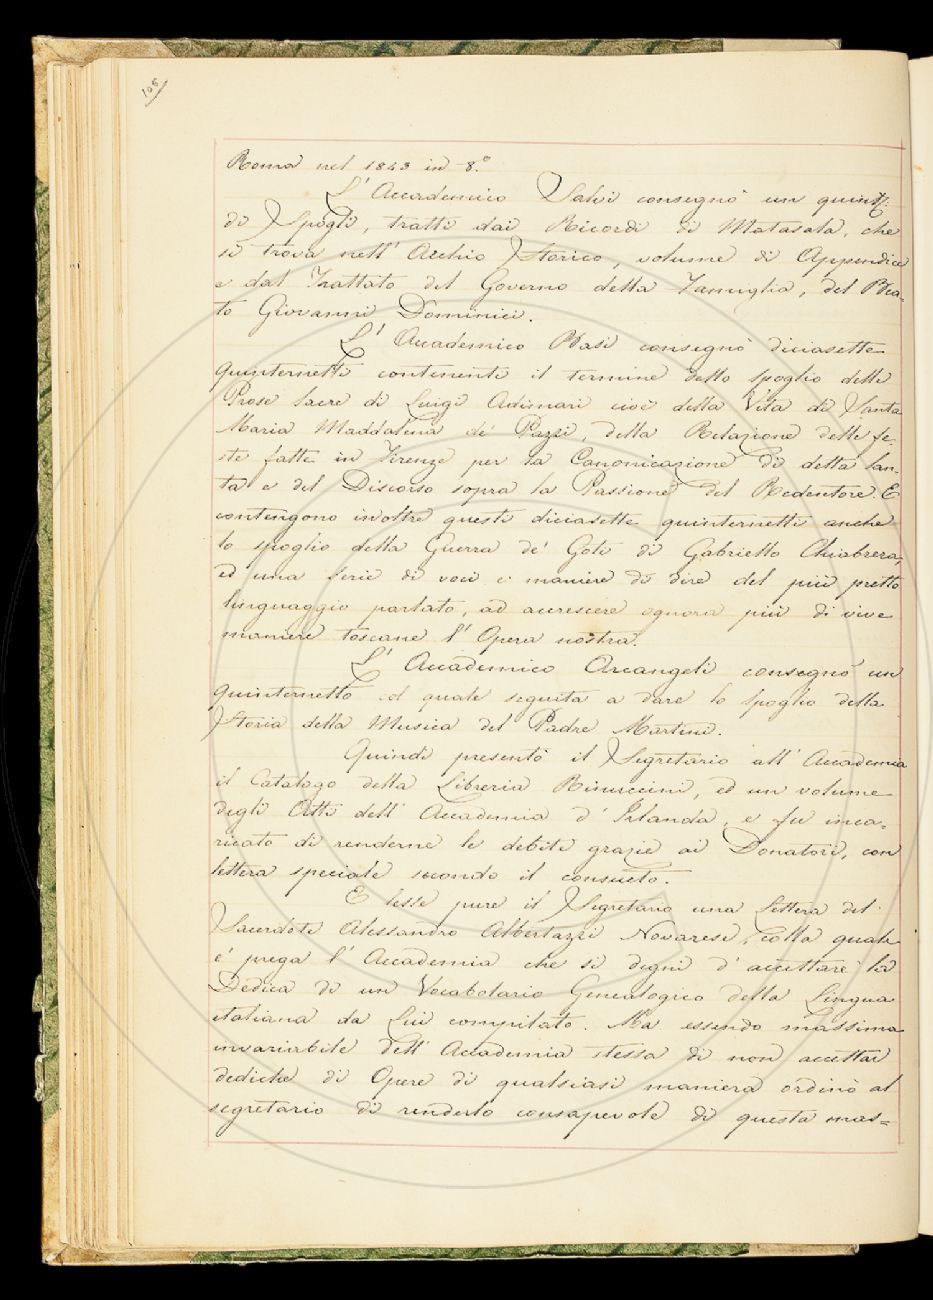 108
Roma nel 1843 in 8.º
L' Accademico Salvi consegnò un quint.º
di Spogli, tratti dai Ricordi di Matasala, che
si trova nell' Archio Storico, volume di Appendice
e dal Trattato del Governo della Famiglia, del Bea-
to Giovanni Dominici.
L' Accademico Masi consegnò diciasette
quinternetti contenenti il termine dello spoglio delle
Prose Sacre di Luigi Adimari cioè della Vita di Santa
Maria Maddalena de' Pazzi, della Relazione delle fe-
ste fatte in Firenze per la Canonicazione di detta San-
ta e del Discorso sopra la Passione del Redentore. E
contengono inoltre questi diciasette quinternetti anche
lo spoglio della Guerra de' Goti di Gabriello Chiabrera,
ed una serie di voci e maniere di dire del più pretto
linguaggio parlato, ad accrescere ognora più di vive
maniere toscane l' Opera nostra.
L' Accademico Arcangeli consegnò un
quinternetto col quale seguita a dare lo spoglio della
Storia della Musica del Padre Martini.
Quindi presentò il Segretario all' Accademia
il Catalogo della Libreria Rinuccini, ed un volume
degli Atti dell' Accademia d' Irlanda, e fu inca-
ricato di renderne le debite grazie ai Donatori, con
lettera speciale secondo il consueto.
E lesse pure il Segretario una Lettera del
Sacerdote Alessandro Albertazzi Novarese, colla quale
e' prega l' Accademia che si degni d' accettare la
Dedica di un Vocabolario Genealogico della Lingua
italiana da Lui compilato. Ma essendo massima
invariabile dell' Accademia stessa di non accettar
dediche di Opere di qualsiasi maniera ordinò al
segretario di renderlo consapevole di questa mas-